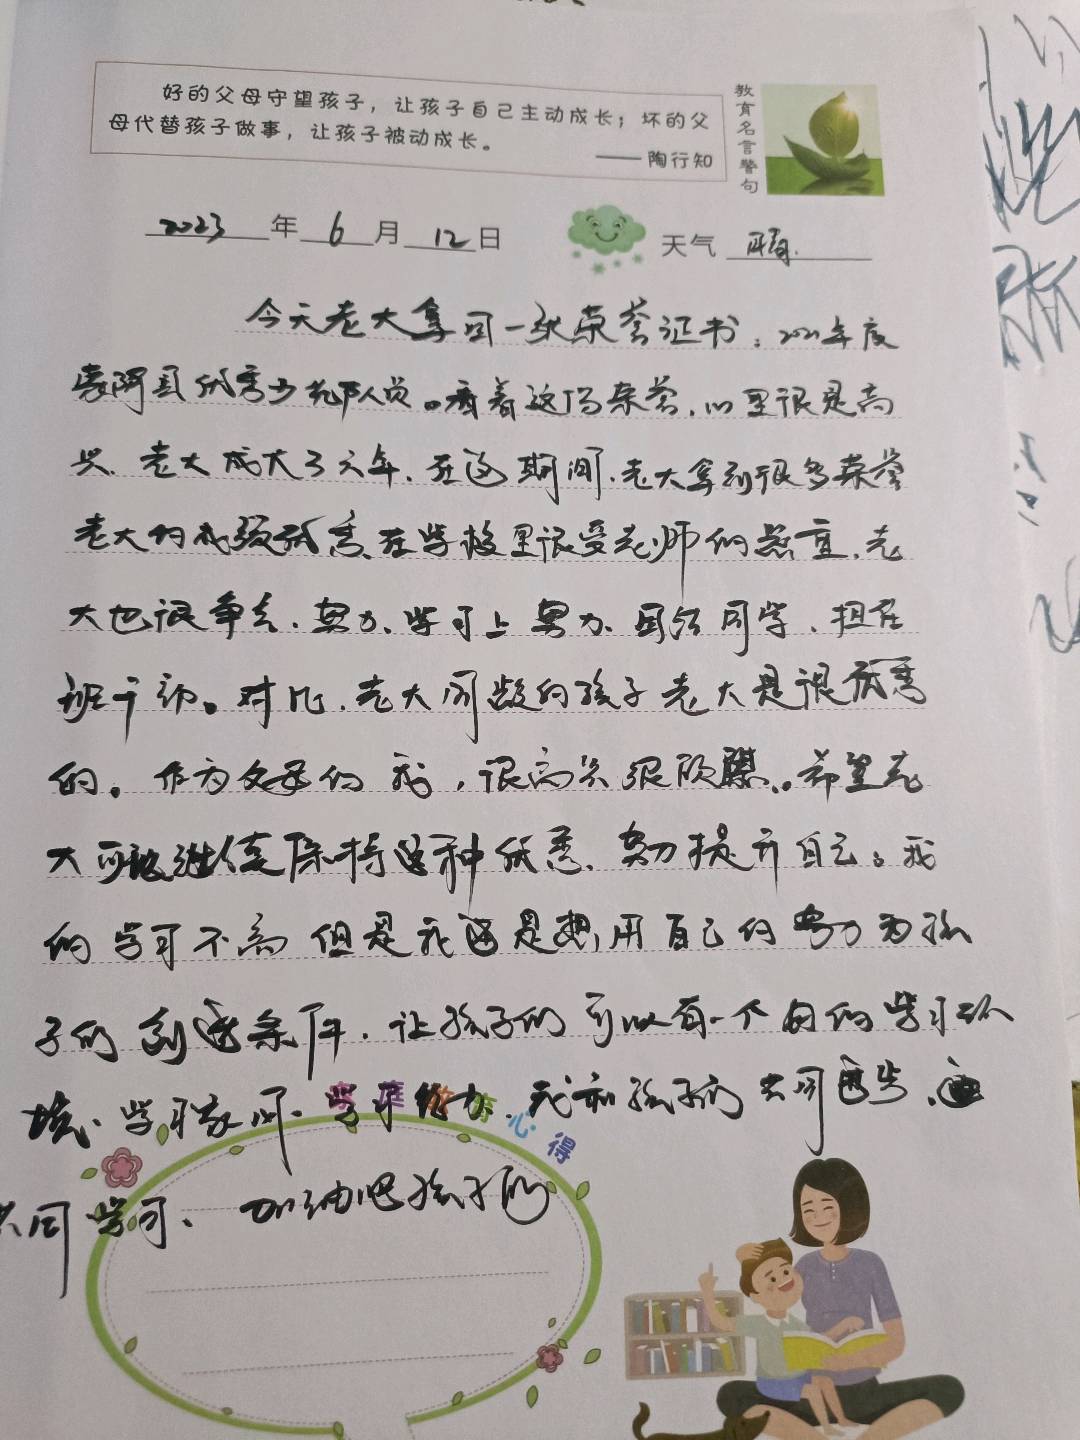 好的父母守望孩子，让孩子自己主动成长；坏的父
母代替孩子做事，让孩子被动成长。
——陶行知
教育名言警句
2023年6月12日
天气 晴.
今天老大拿回一张荣誉证书：2021年度
蒙阴县优秀少先队员。看着这份荣誉，心里很是高
兴、老大成长了六年、在这期间、老大拿到很多荣誉
老大的成绩优秀、在学校里很受老师的器重、老
大也很争气、努力、学习上努力、团结同学、担任
班干部。对比、老大同龄的孩子老大是很优秀
的。作为父母的我，很高兴很欣慰。希望老
大可能继续保持这种优秀、努力提升自己。我
的学习不高但是我还是想用自己的努力为孩
子们创造条件、让孩子们可以有一个好的学习环
境、学习家间、学习能力、我和孩子们共同进步、
家庭教育心得
共同学习、加油吧孩子们